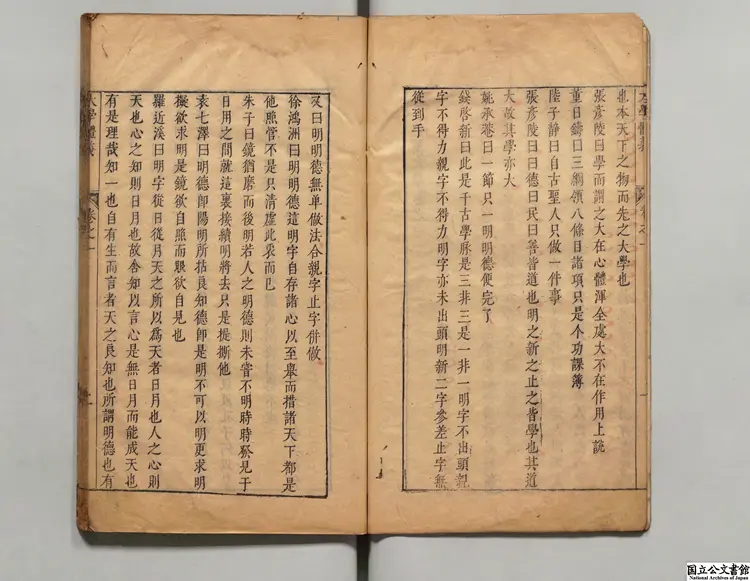 也本天下之物而先之大學也
張彥陵曰學而謂之大在心體渾全處大不在作用上說
董日鑄曰三綱領八條目諸項只是个功課簿
陸子靜曰自古聖人只做一件事
張彥陵曰曰德曰民曰善皆道也明之新之止之皆學也其道
大故其學亦大
姚承菴曰一節只一明明德便完了
錢啓新曰此是千古學脉是三非三是一非一明字不出頭親
字不得力親字不得力明字亦未出頭明新二字參差止字無
從到手
又曰明明德無單做法合親字止字併做
徐鴻洲曰明明德這明字自存諸心以至舉而措諸天下都是
他照管不是只清虛此衷而已
朱子曰鏡猶磨而後明若人之明德則未嘗不明時時發見于
日用之間就這裏接續明將去只是提撕他
袁七澤曰明德卽陽明所拈良知德卽是明不可以明更求明
擬欲求明是鏡欲自照而眼欲自見也
羅近溪曰明字從日從月天之所以爲天者日月也人之心則
天也心之知則日月也故舍知以言心是無日月而能成天也
有是理哉知一也自有生而言者天之良知也所謂明德也有
大學
卷之一
国立公文書館
National Archives of Japan